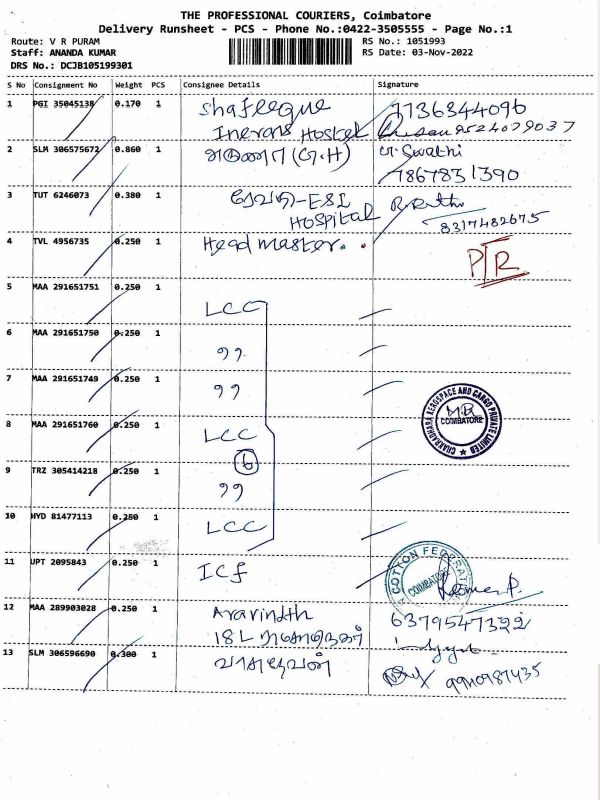 THE PROFESSIONAL COURIERS, Coimbatore
Delivery Runsheet - PCS - Phone No.:0422-3505555 - Page No.:1
Route: V R PURAM RS No.: 1051993
Staff: ANANDA KUMAR RS Date: 03-Nov-2022
DRS No.: DCJB105199301
S No Consignment No Weight PCS Consignee Details Signature
1 PGI 35045138 0.170 1 Shafeeque 7736344096
Hostel 9524079037
2 SLM 306575672 0.860 1 (G.H) Swathi
7867831390
3 TUT 6246073 0.380 1 ரேவதி-ESI
HOSPITAL
8317482675
4 TVL 4956735 0.250 1 Head master. P/R
5 MAA 291651751 0.250 1
LCC
6 MAA 291651750 0.250 1
99
7 MAA 291651749 0.250 1
99
8 MAA 291651760 0.250 1 CHAKRADHARA AEROSPACE AND CARGO PRIVATE LIMITED COIMBATORE
LCC
6
9 TRZ 305414218 0.250 1
99
10 HYD 81477113 0.250 1
LCC
11 UPT 2095843 0.250 1 ICF COTTON FEDERAT COIMBATORE
12 MAA 289903028 0.250 1 Aravindth 6379547322
13 SLM 306596690 0.300 1 வாசுதேவன்
9910987435